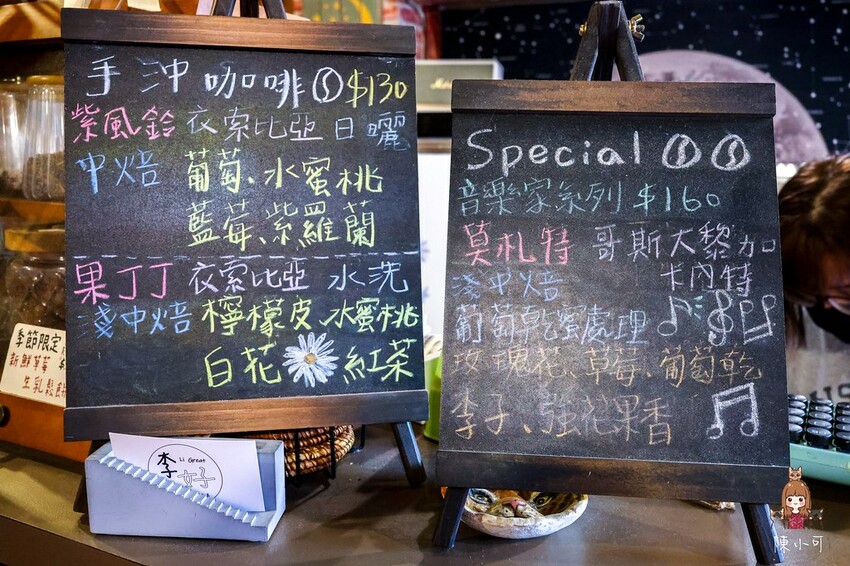 手沖咖啡 $130
紫風鈴 衣索比亞 日曬
中焙 葡萄、水蜜桃
藍莓、紫羅蘭
果丁丁 衣索比亞 水洗
淺中焙 檸檬皮、水蜜桃
白花 紅茶
Special
音樂家系列 $160
莫札特 哥斯大黎加
淺中焙 卡內特
葡萄乾蜜處理
玫瑰花、草莓、葡萄乾
李子、強花果香
季節限定
新鮮草莓
生乳鬆餅
李好
Li Great
陳小可